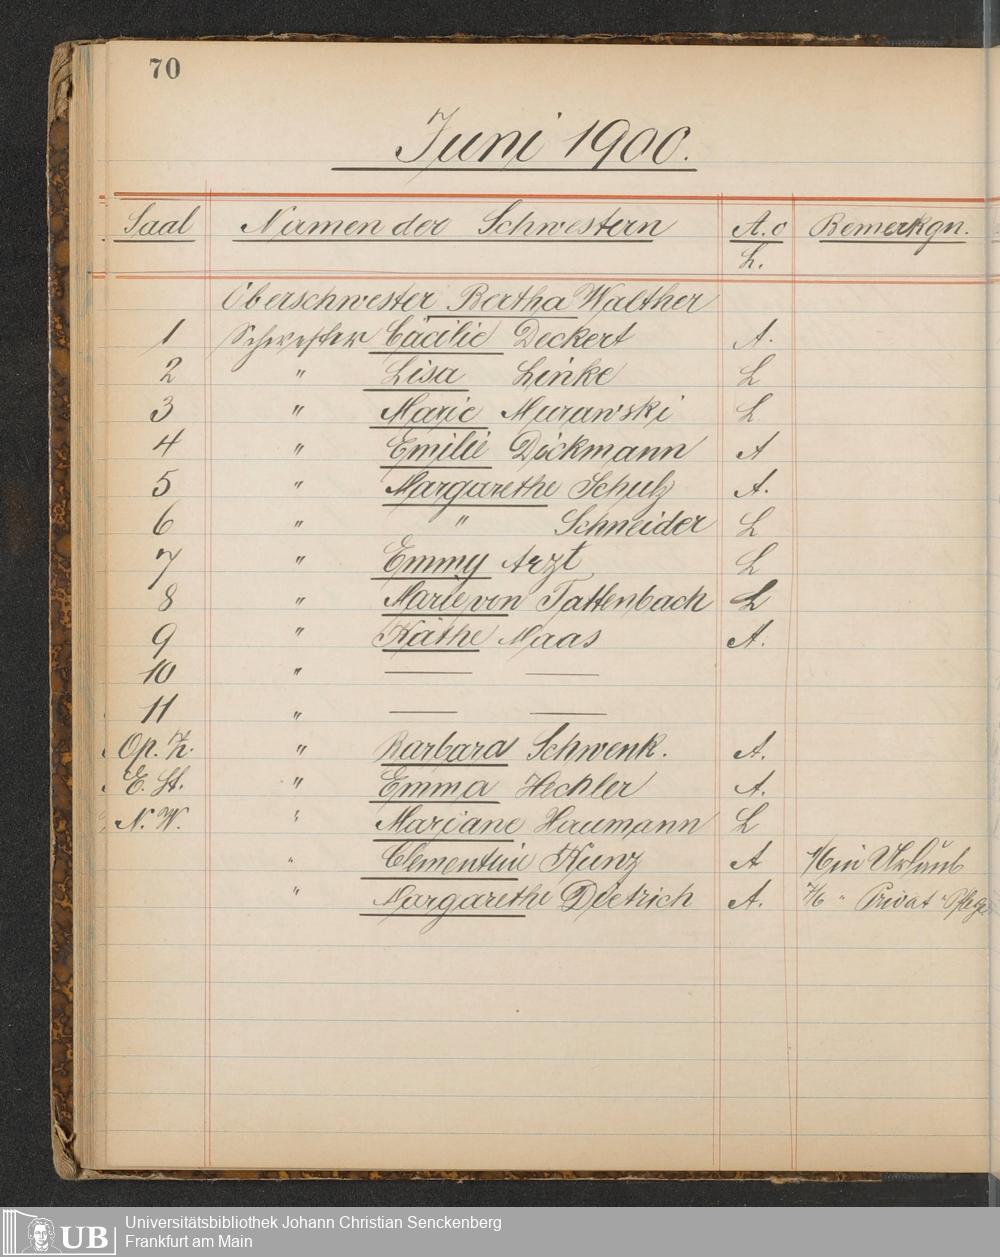 70
Juni 1900.
Saal Namen der Schwestern A. o L. Bemerkgn.
Oberschwester Bertha Walther
1 Schwester Cäcilie Deckert A.
2 " Lisa Linke L
3 " Marie Murawski L
4 " Emilie Dickmann A
5 " Margarethe Schulz A.
6 " " Schneider L
7 " Emmy Arzt L
8 " Marie von Tattenbach L
9 " Käthe Maas A.
10 " — —
11 " — —
Op. Z. " Barbara Schwenk. A.
E. St. " Emma Hechler A.
N. W. " Mariane Haumann L
" Clementine Kunz A 1/6 in Urlaub
" Margarethe Dietrich A. 7/6 " Privat "Pflege
Universitätsbibliothek Johann Christian Senckenberg
UB Frankfurt am Main